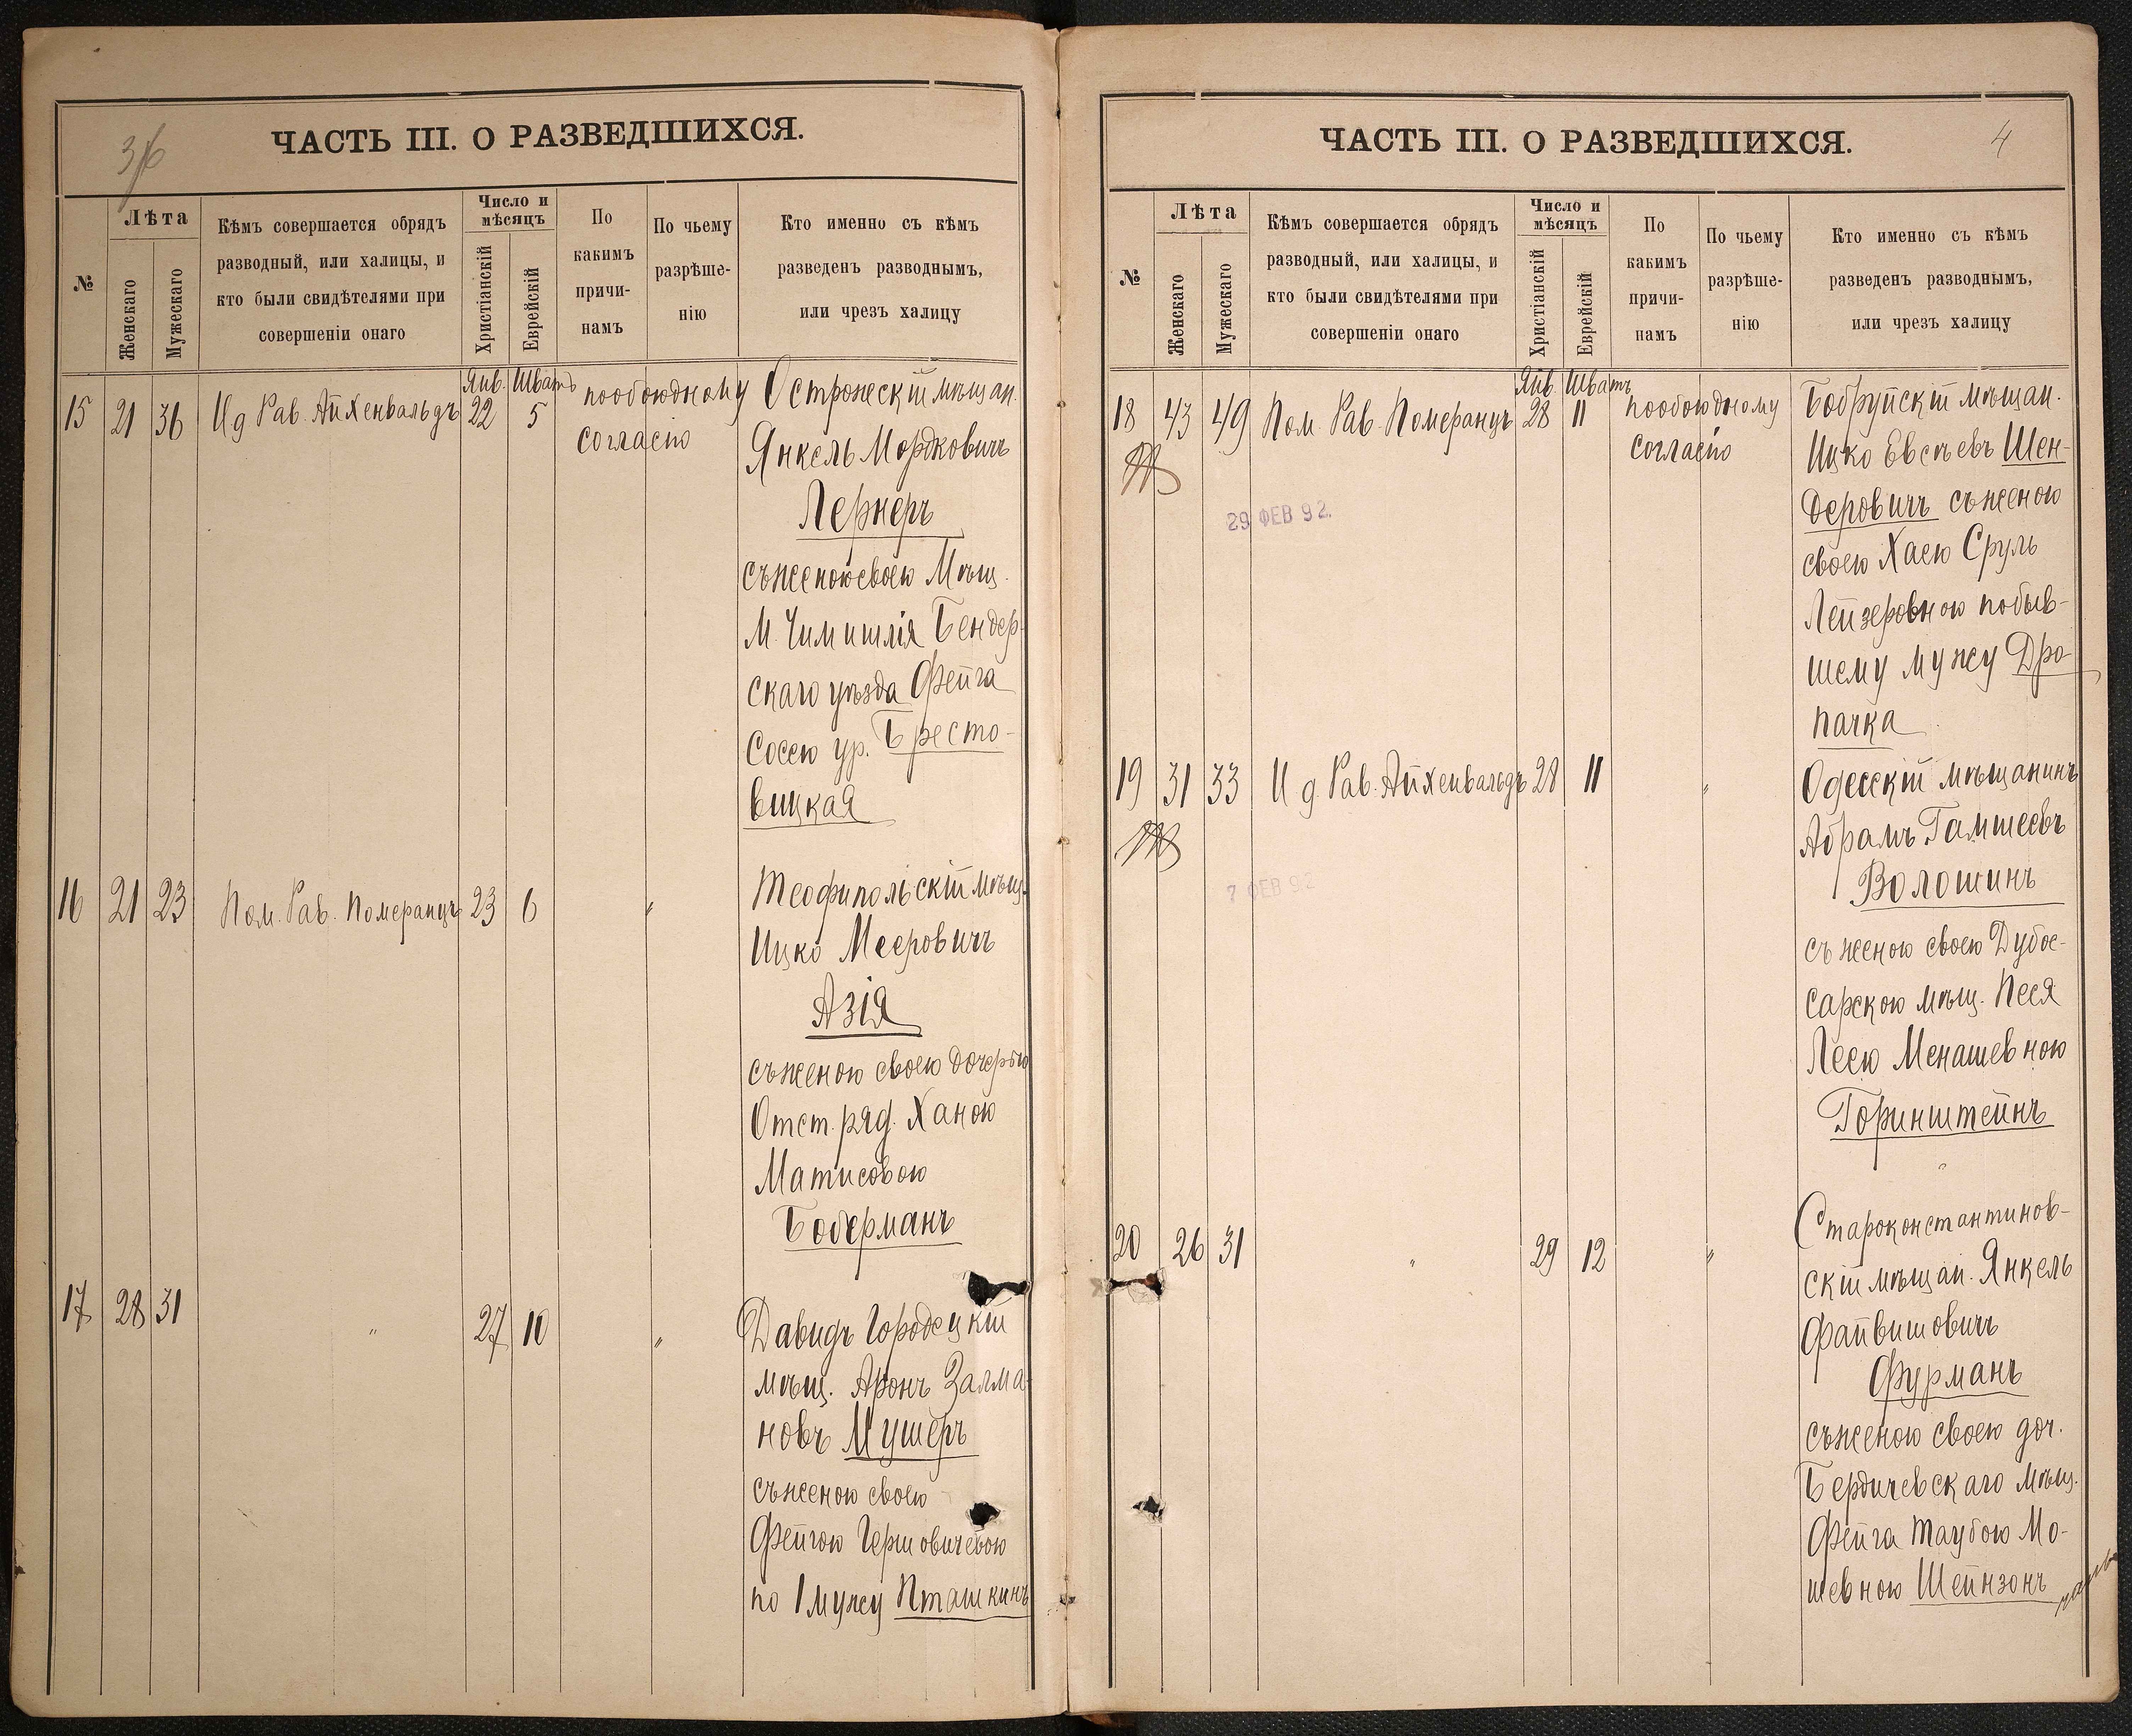 3
ЧАСТЬ III. О РАЗВЕДШИХСЯ.
№
Лѣта
Женскаго
Мужескаго
Кѣмъ совершается обрядъ
разводный, или халицы, и
кто были свидѣтелями при
совершеніи онаго
Число и
мѣсяцъ
Христіанскій
Еврейскій
По
какимъ
причи-
намъ
По чьему
разрѣше-
нію
Кто именно съ кѣмъ
разведенъ разводнымъ,
или чрезъ халицу
Янв. Шватъ
15 21 36 И д Рав. Айхенвальдъ 22 5 пообоюдному
согласію
Острожескій мѣщан.
Янкель Мордковичъ
Лернеръ
съ женою своею Мѣщ.
М. Чимишлія Бендер-
скаго уѣзда Фейга
Сосею ур. Бресто-
вицкая
16 21 23 Пом. Рав. Померанцъ 23 6 "
Теофипольскій мѣщ.
Ицко Мееровичъ
Азія
съ женою своею дочерью
Отст. ряд. Ханою
Матисовою
Боберманъ
17 28 31 " 27 10 "
Давидъ Городецкій
мѣщ. Аронъ Залма-
новъ Мушеръ
съ женою своею
Фейгою Гершовичевою
по 1 мужу Пташкинъ
ЧАСТЬ III. О РАЗВЕДШИХСЯ.
4
№
Лѣта
Женскаго
Мужескаго
Кѣмъ совершается обрядъ
разводный, или халицы, и
кто были свидѣтелями при
совершеніи онаго
Число и
мѣсяцъ
Христіанскій
Еврейскій
По
какимъ
причи-
намъ
По чьему
разрѣше-
нію
Кто именно съ кѣмъ
разведенъ разводнымъ,
или чрезъ халицу
Янв. Шватъ
18 43 49 Пом. Рав. Померанцъ 28 11 пообоюдному
согласію
29 ФЕВ 92.
Бобруйскій мѣщан.
Ицко Евсѣевъ Шен-
деровичъ съ женою
своею Хаею Сруль
Лейзеровною по быв-
шему мужу Дро-
пачка
19 31 33 И д. Рав. Айхенвальдъ 28 11 "
7 ФЕВ 92
Одесскій мѣщанинъ
Абрамъ Гамшеевъ
Волошинъ
съ женою своею Дубос-
сарскою мѣщ. Песя
Леею Менашевною
Горинштейнъ
20 26 31 " 29 12 "
Староконстантинов-
скій мѣщан. Янкель
Файвишовичъ
Фурманъ
съ женою своею доч.
Бердичевскаго мѣщ.
Фейга Таубою Мо-
шевною Шейнзонъ